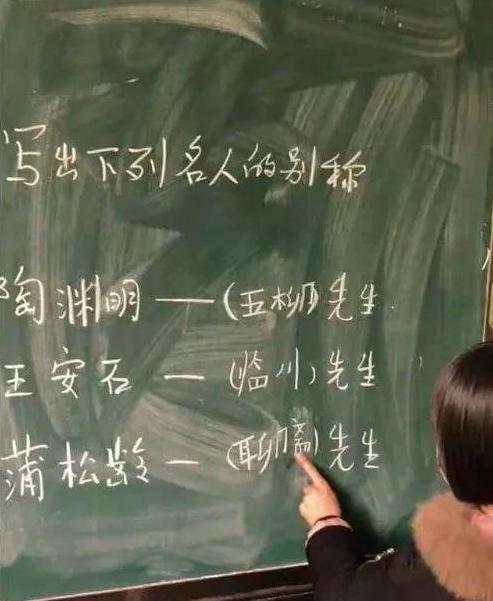 写出下列名人的别称
陶渊明—(五柳)先生
王安石—(临川)先生
蒲松龄—(聊斋)先生